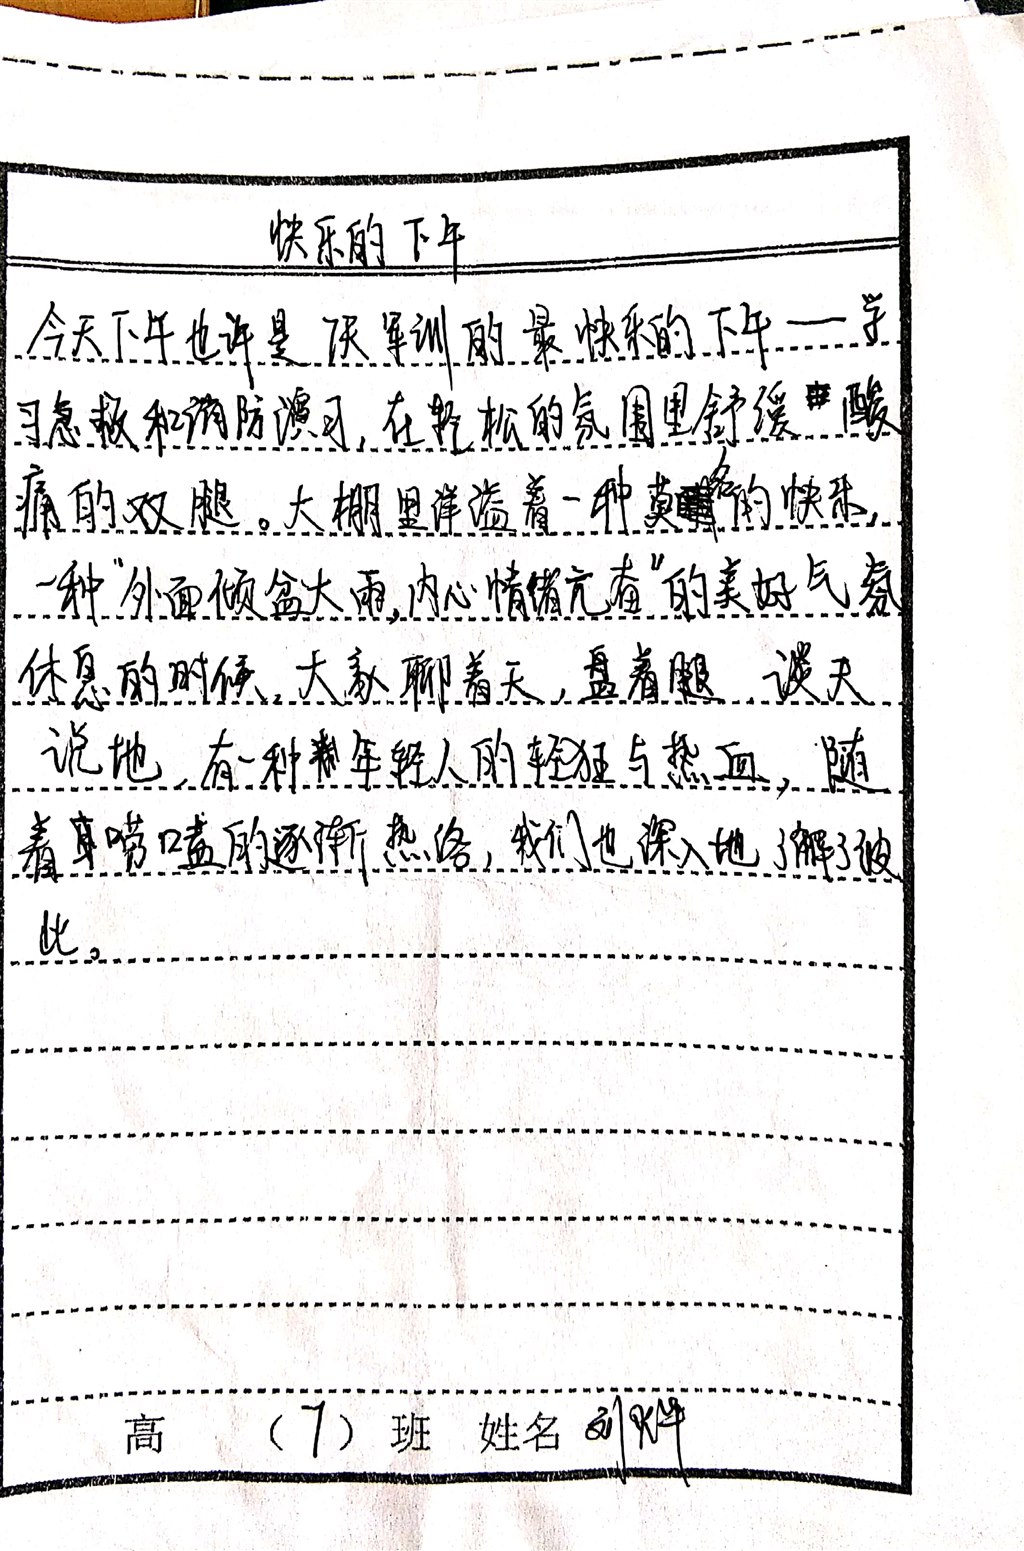 快乐的下午
今天下午也许是7天军训的最快乐的下午——学
习急救和消防演习,在轻松的氛围里舒缓酸
痛的双腿。大棚里洋溢着一种莫名的快乐,
一种“外面倾盆大雨,内心情绪亢奋”的美好气氛
休息的时候,大家聊着天,盘着腿,谈天
说地,有一种年轻人的轻狂与热血,随
着唠嗑的逐渐热络,我们也深入地了解了彼
此。
高 (7)班 姓名 刘